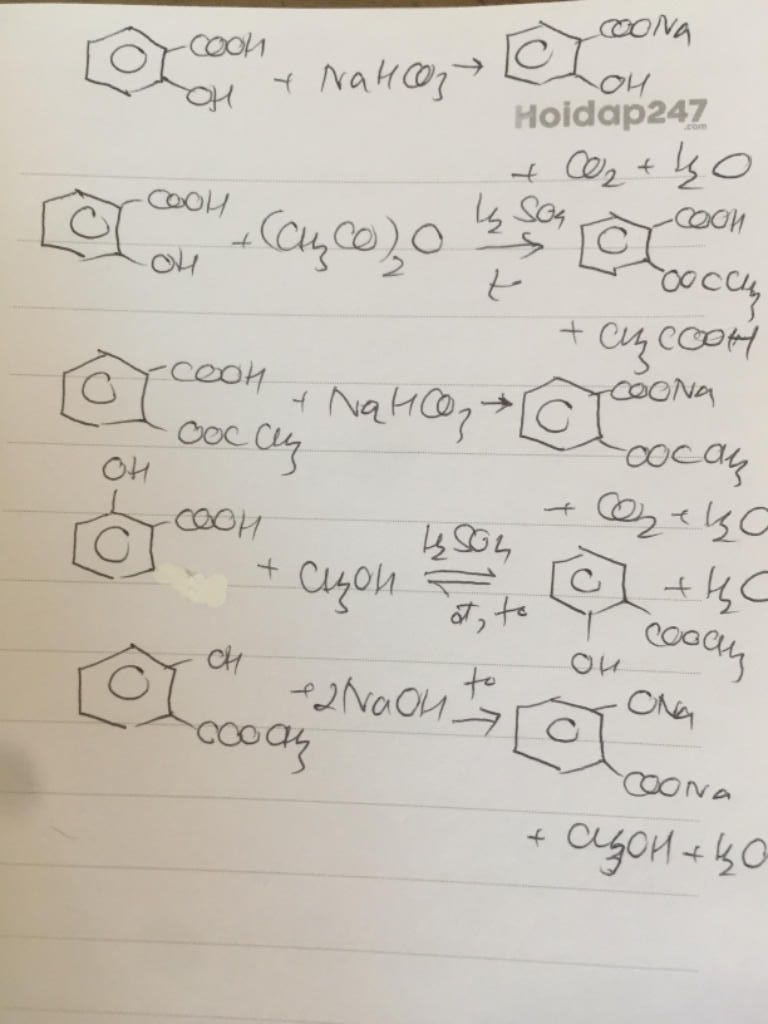 COOH
OH + NaHCO3 → COONa
OH
Hoidap247
.com
+ CO2 + H2O
COOH
OH + (CH3CO)2O H2SO4 → COOH
t° OOCCH3
+ CH3COOH
COOH
OOCCH3 + NaHCO3 → COONa
OOCCH3
+ CO2 + H2O
OH
COOH + CH3OH H2SO4 ⇌ + H2O
đ, t° COOCH3
OH
OH
COOCH3 + 2NaOH t° → ONa
COONa
+ CH3OH + H2O